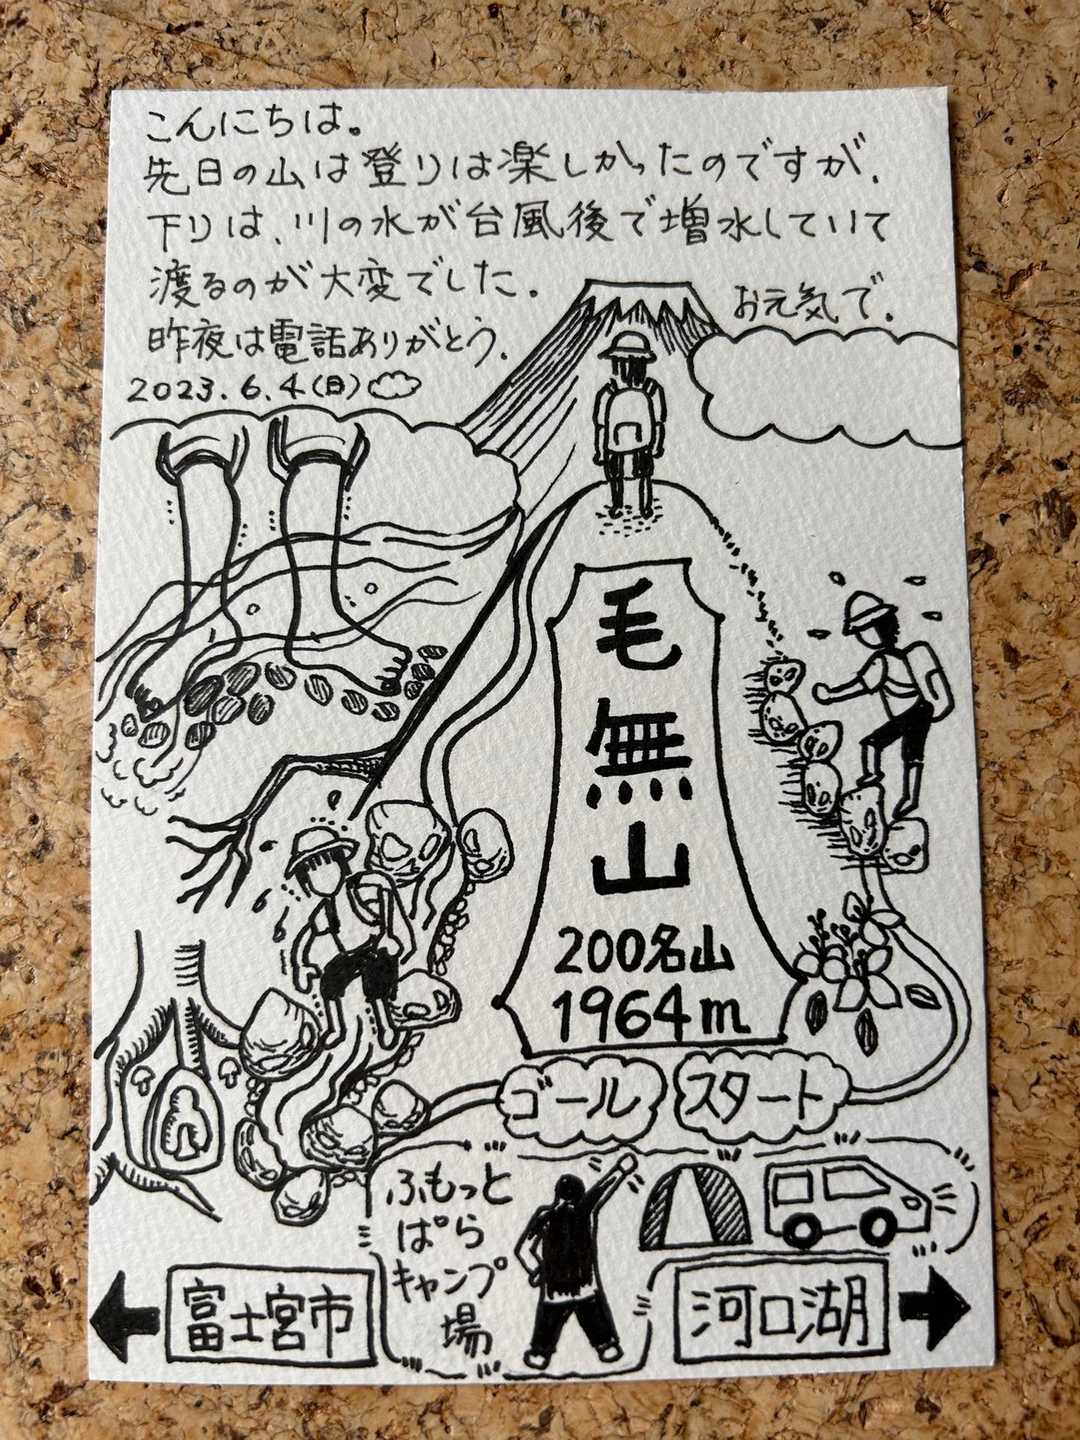 こんにちは。
先日の山は登りは楽しかったのですが、
下りは、川の水が台風後で増水していて
渡るのが大変でした。
お元気で。
昨夜は電話ありがとう。
2023.6.4(日)
毛無山
200名山
1964m
ゴール
スタート
ふもっと
ぱら
キャンプ
場
富士宮市
河口湖